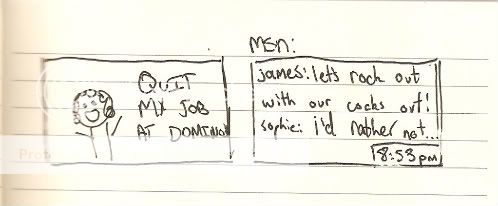 msn:
QUIT
MY JOB
AT DOMINO
james: let's rock out
with our cocks out!
sophie: i'd rather not...
8:53pm